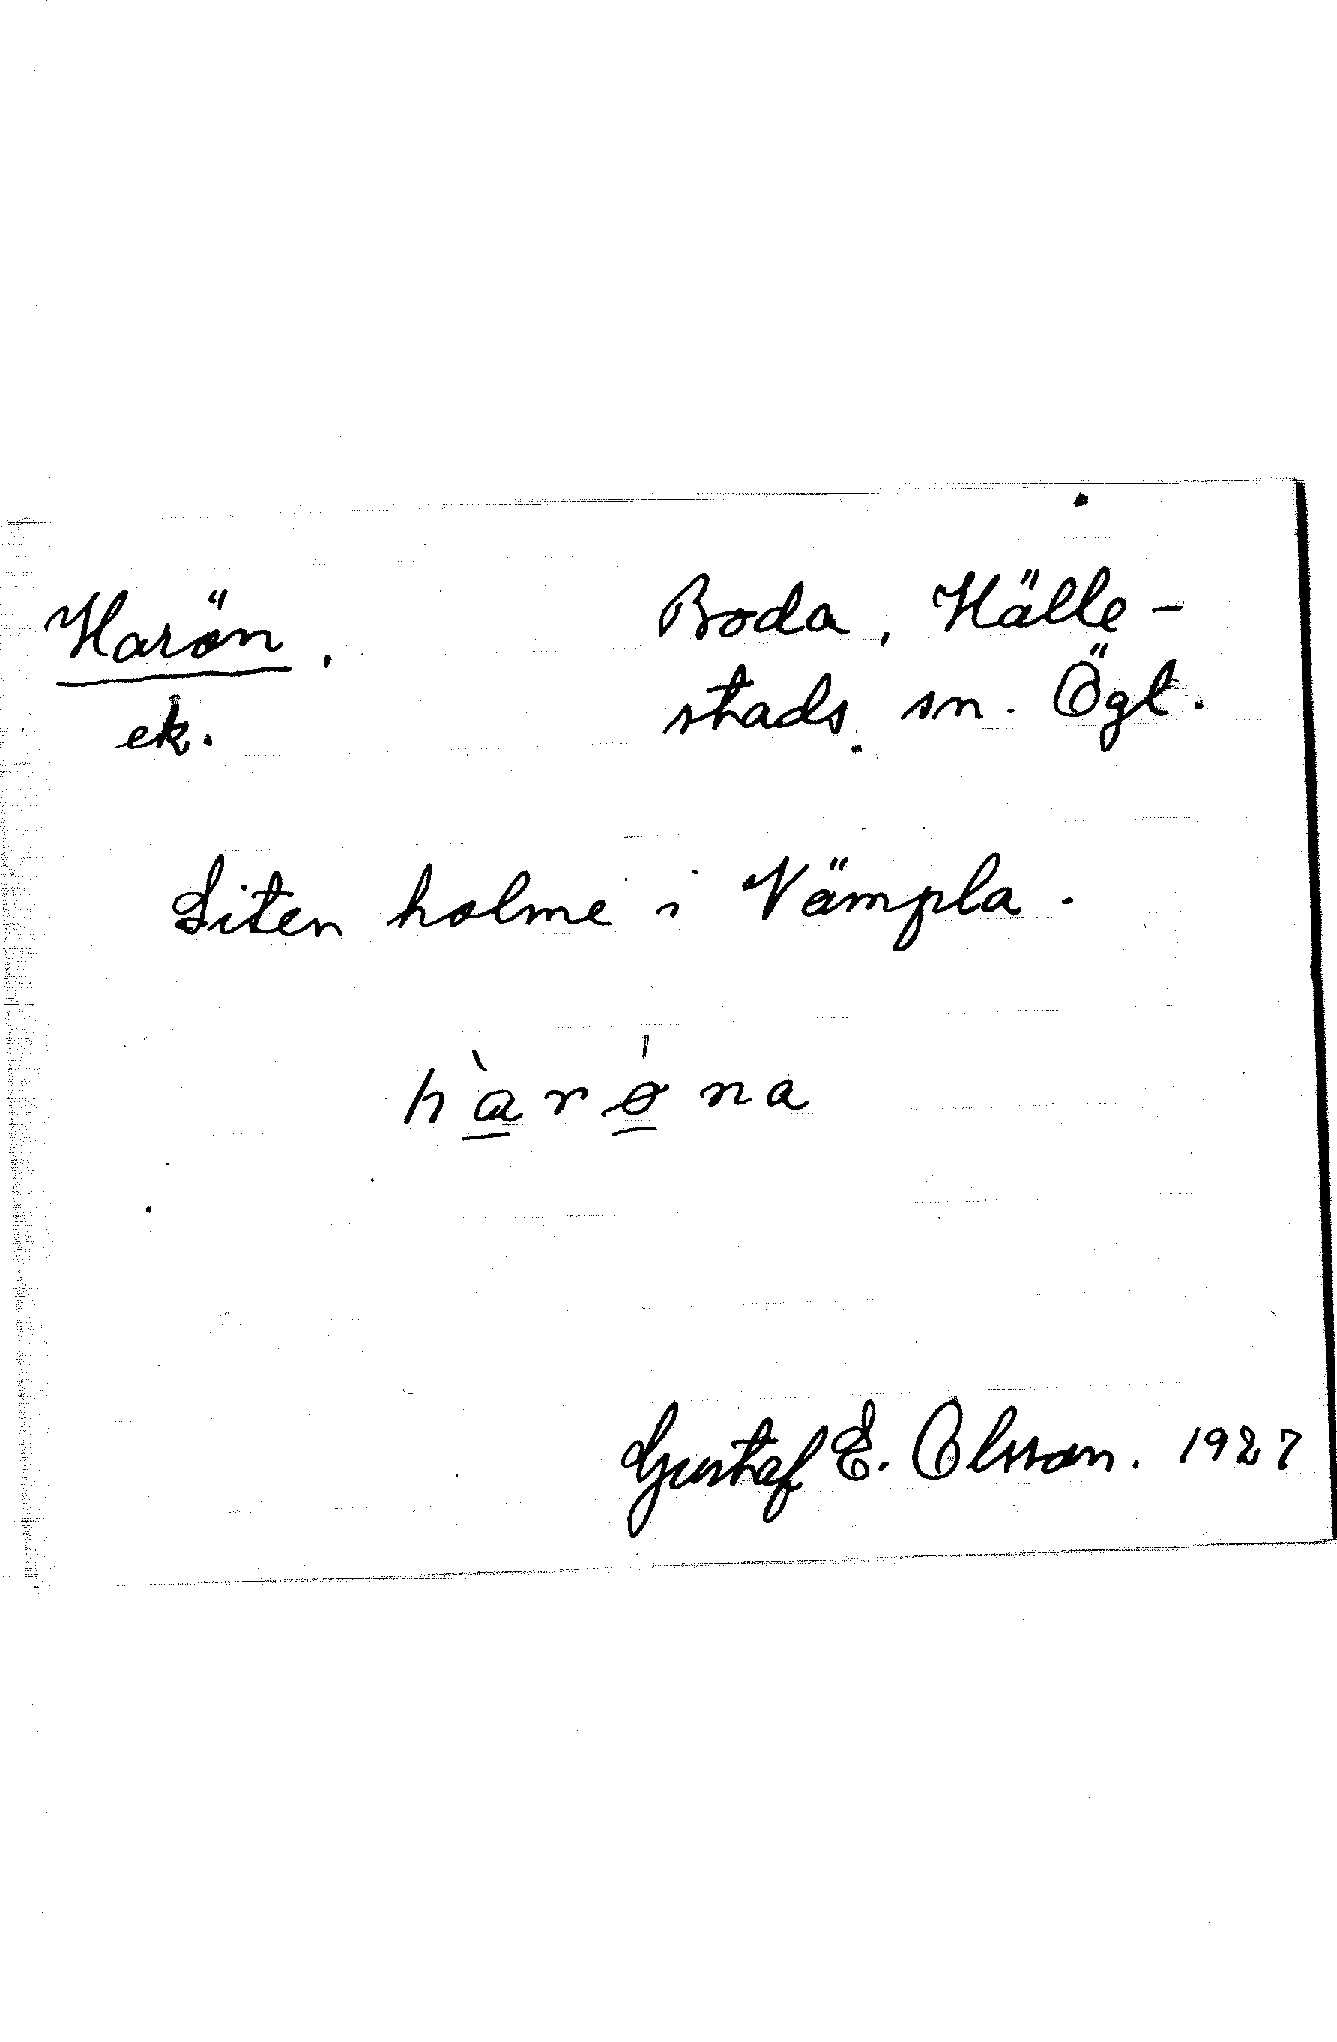 Harön.
Boda, Hälle-
ek.
stads sn. Ögl.
Liten holme i Vämpla.
hàrǿna
Gustaf E. Olsson. 1927